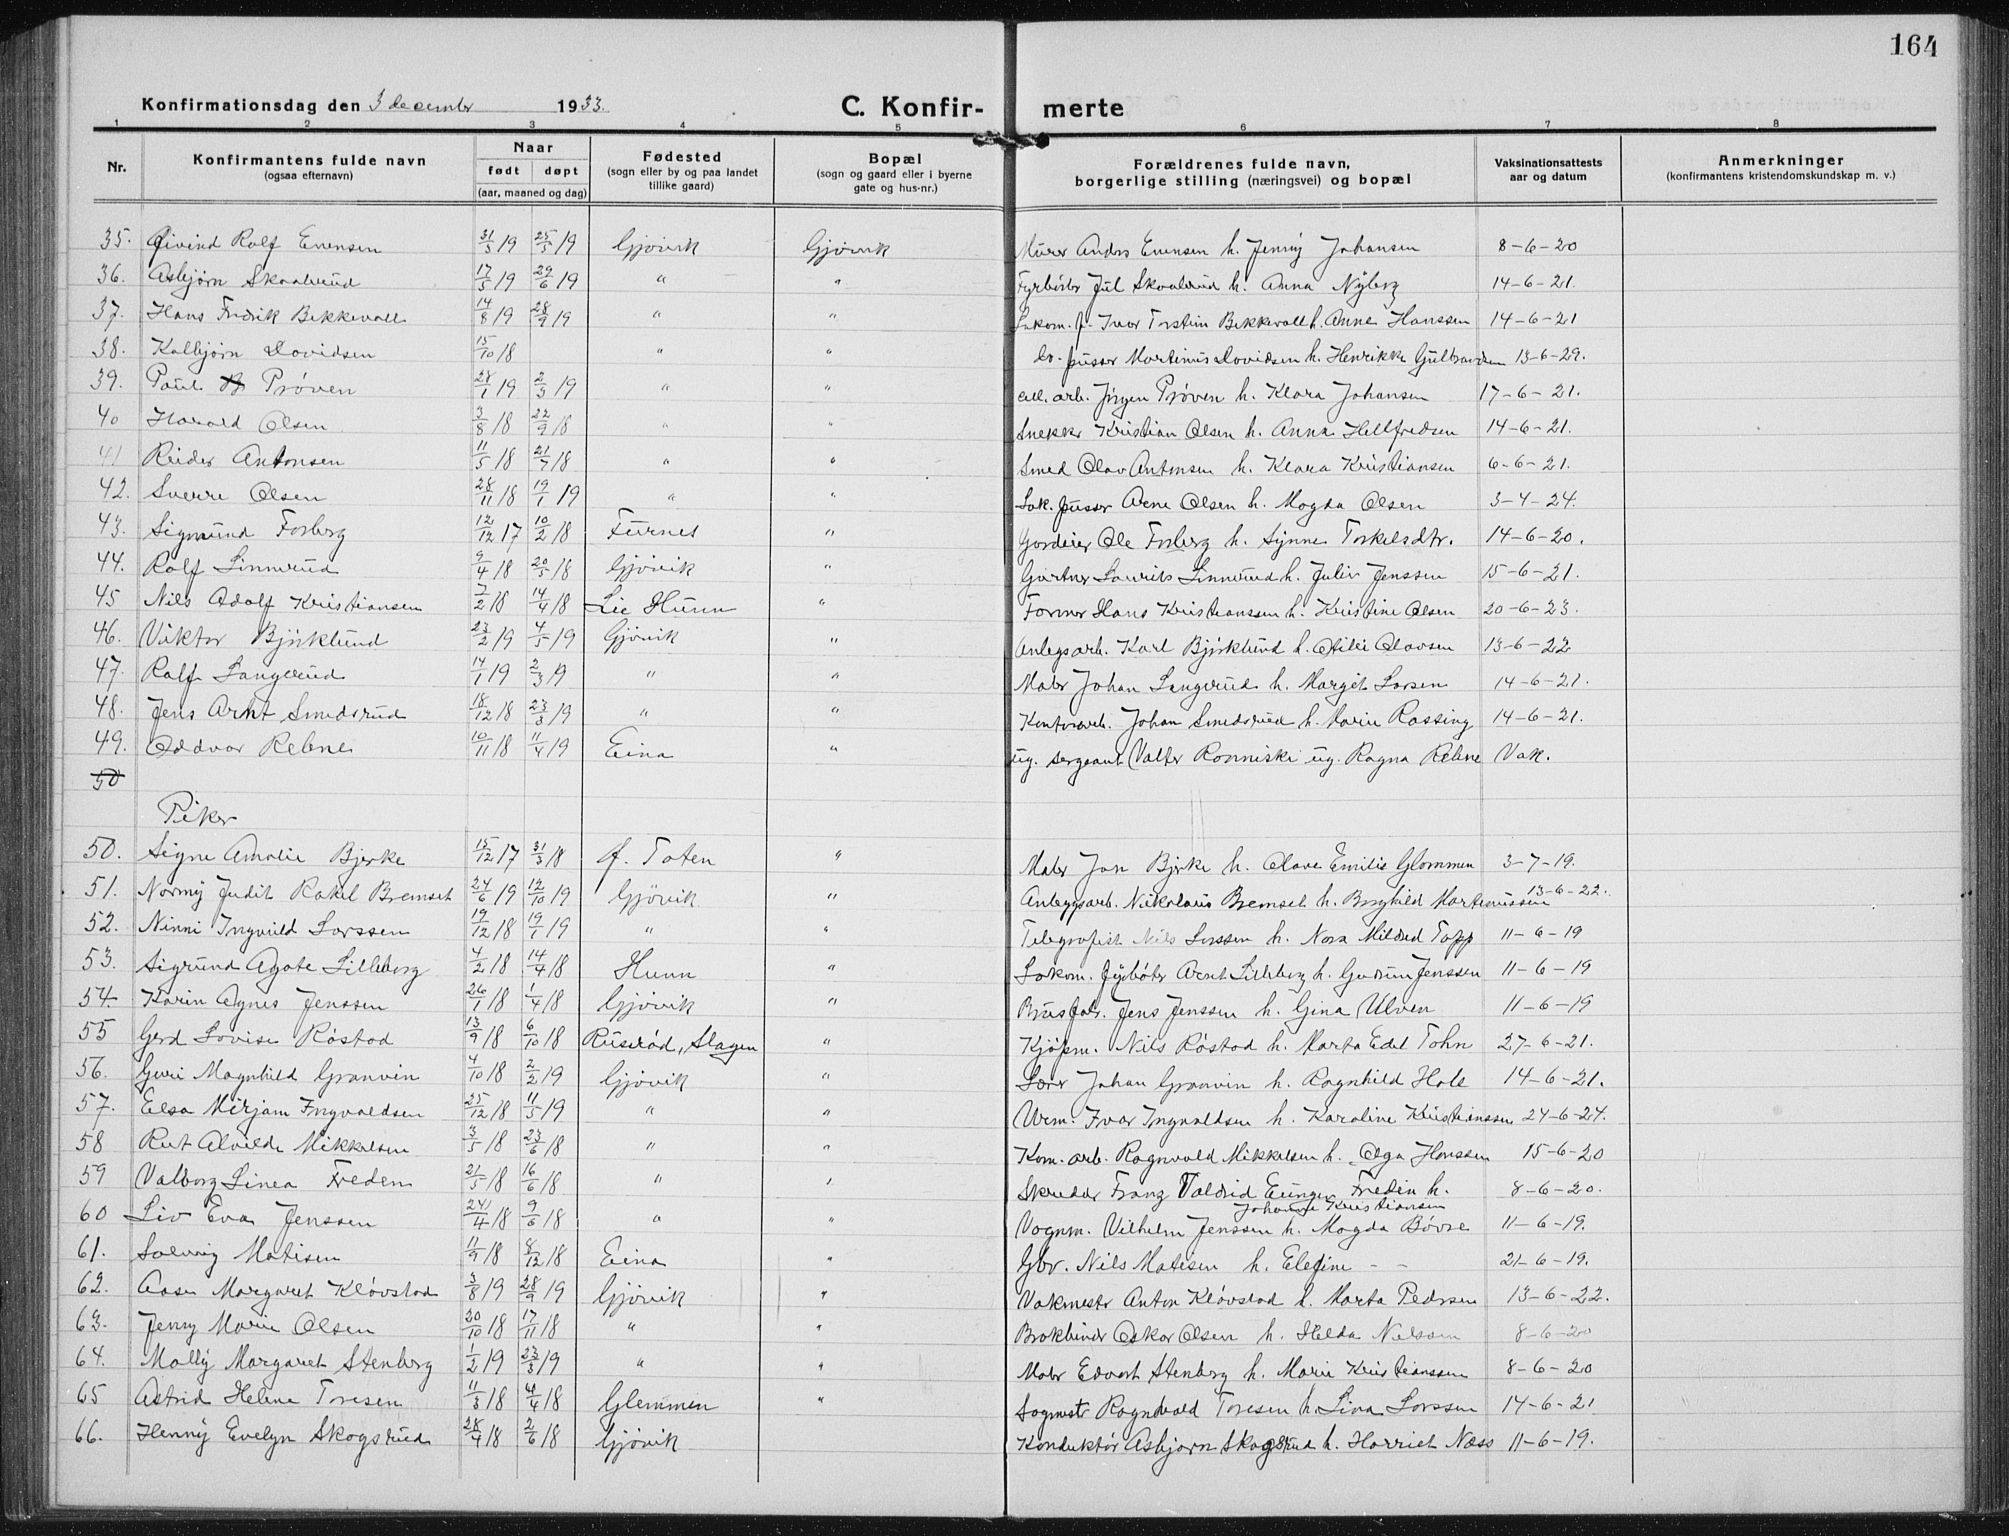 164
Konfirmationsdag den 3 december 1933.
C. Konfir- merte
1 2 3 4 5 6 7 8
Nr.
Konfirmantens fulde navn
(ogsaa efternavn)
Naar
født døpt
(aar, maaned og dag)
Fødested
(sogn eller by og paa landet
tillike gaard)
Bopæl
(sogn og gaard eller i byerne
gate og hus-nr.)
Forældrenes fulde navn,
borgerlige stilling (næringsvei) og bopæl
Vaksinationsattests
aar og datum
Anmerkninger
(konfirmantens kristendomskundskap m. v.)
35. Øivind Rolf Evensen 31/3 19 25/5 19 Gjøvik Gjøvik Murer Anders Evensen h. Jenny Johansen 8-6-20
36. Asbjørn Skaalrud 17/5 19 29/6 19 " " Fyrbøter Jul Skaalrud h. Anna Nyberg 14-6-21.
37. Hans Fredrik Bekkevoll 14/8 19 28/9 19 " " Lokom. f. Ivar Torstein Bekkevoll h. Anne Hanssen 14-6-21
38. Kolbjørn Davidsen 15/10 18 " " Lo. pusser Martinus Davidsen h. Henrikke Gulbrandsen 13-6-29.
39. Paul Prøven 28/1 19 2/3 19 " " all. arb. Jørgen Prøven h. Klara Johansen 17-6-21.
40 Harald Olsen 3/8 18 22/9 18 " " Snekker Kristian Olsen h. Anna Hellfredsen 14-6-21.
41 Reidar Antonsen 11/5 18 21/7 18 " " Smed Olav Antonsen h. Klara Kristiansen 6-6-21.
42. Sverre Olsen 28/11 18 19/1 19 " " Lok. pusser Arne Olsen h. Magda Olsen 3-4-24.
43. Sigmund Forberg 12/12 17 10/2 18 Furnes " Gårdeier Ole Forberg h. Synne Torkelsdtr. 14-6-20.
44. Rolf Linnerud 9/4 18 20/5 18 Gjøvik " Gartner Laurits Linnerud h. Julie Jenssen 15-6-21.
45 Nils Adolf Kristiansen 7/2 18 14/4 18 Lie Hunn " Former Hans Kristianssen h. Kristine Olsen 20-6-23.
46. Viktor Bjørklund 23/2 19 4/5 19 Gjøvik " Anlegsarb. Karl Bjørklund h. Otilie Olavsen 13-6-22
47. Rolf Langerud 14/1 19 2/3 19 " " Maler Johan Langerud h. Margit Larsen 14-6-21.
48. Jens Arnt Smedsrud 18/12 18 23/3 19 " " Kontorarb. Johan Smedsrud h. Marie Rossing 14-6-21.
49. Oddvar Relene 10/11 18 11/4 19 Eina " ug. sergeant Valter Ronniski ug. Ragna Relene Vak.
50
Piker
50. Signe Amalie Bjerke 15/12 17 31/3 18 Ø. Toten " Maler Jan Bjerke h. Olave Emilie Glommen 3-7-19.
51. Normy Judit Rakel Bremset 24/6 19 12/10 19 Gjøvik " Anleggsarb. Nikolaus Bremset h. Borghild Martinussen 13-6-22.
52. Ninni Ingvild Larssen 19/12 18 19/1 19 " " Telegrafist Nils Larssen h. Nora Mildred Topp 11-6-19
53. Sigrund Agate Lilleborg 4/2 18 14/4 18 Hunn " Lokom. fyrbøter Arnt Lilleborg h. Gudrun Jenssen 11-6-19
54. Karin Agnes Jenssen 26/1 18 1/4 18 Gjøvik " Brusfabr. Jens Jenssen h. Gina Ulven 11-6-19
55 Gerd Lovise Røstad 13/9 18 6/10 18 Ruserød, Slagen " Kjøpm. Nils Røstad h. Marta Edel Tohn 27-6-21.
56. Guri Magnhild Granvin 4/10 18 2/2 19 Gjøvik " Lærer Johan Granvin h. Ragnhild Hole 14-6-21.
57. Elsa Mirjam Ingvaldsen 25/12 18 11/5 19 " " Urm. Ivar Ingvaldsen h. Karoline Kristianssen 24-6-24.
58 Rut Alvilde Mikkelsen 3/5 18 23/6 18 " " Kom. arb. Ragnvald Mikkelsen h. Olga Hanssen 15-6-20
59 Valborg Linea Fredin 21/5 18 16/6 18 " " Skredder Franz Valdrid Eunger Fredin h. Johanne Kristiansen 8-6-20.
60 Liv Eva Jenssen 24/4 18 9/6 18 " " Vognm. Vilhelm Jenssen h. Magda Bøvre 11-6-19.
61. Solveig Matisen 11/9 18 8/12 18 Eina " Gbr. Nils Matisen h. Elefine - - 21-6-19.
62. Aase Margaret Kløvstad 3/8 19 28/9 19 Gjøvik " Vakmester Anton Kløvstad h. Marta Pedersen 13-6-22.
63. Jenny Marie Olsen 20/10 18 17/11 18 " " Bokbinder Oskar Olsen h. Helda Nielssen 8-6-20
64. Molly Margaret Stenberg 1/2 19 23/3 19 " " Maler Edvart Stenberg h. Marie Kristianssen 8-6-20
65 Astrid Helene Toresen 11/3 18 4/4 18 Glemmen " Sagmester Ragnvald Toresen h. Lina Larssen 14-6-21
66. Henny Evelyn Skogsrud 28/4 18 2/6 18 Gjøvik Konduktør Asbjørn Skogsrud h. Harriet Næss 11-6-19.